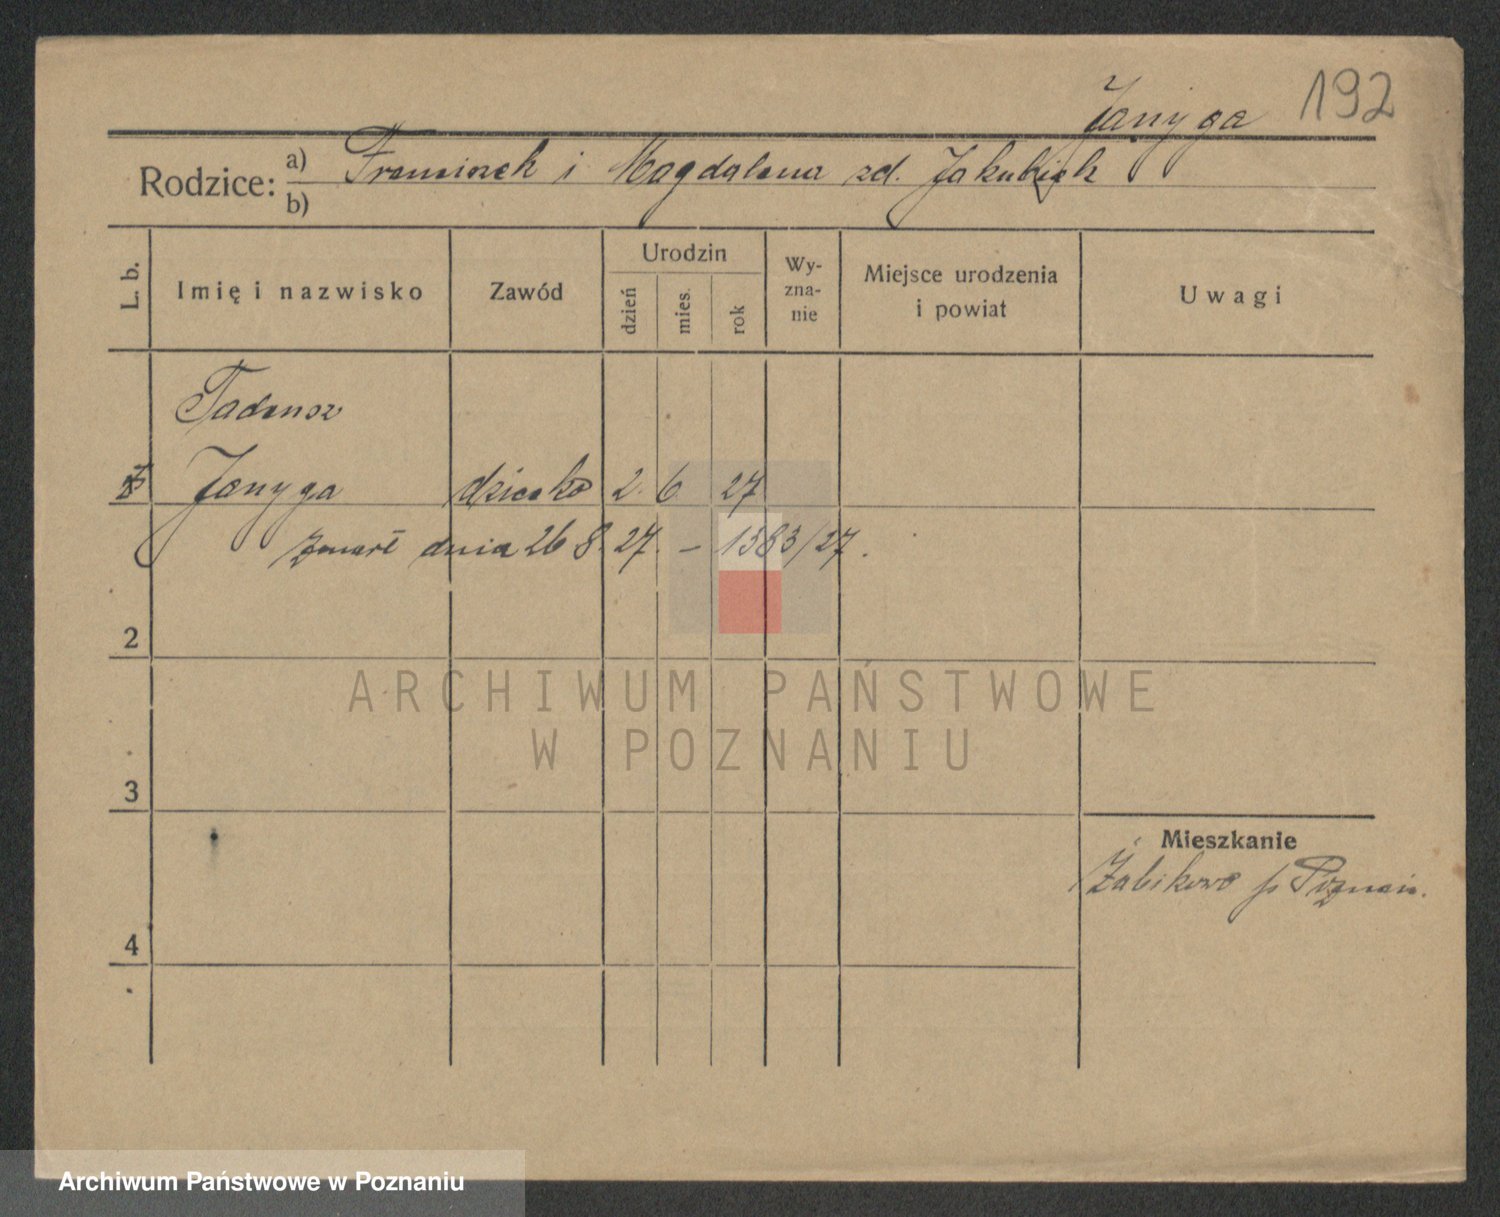 Janyga 192
Rodzice: a) Franciszek i Magdalena zd. Jakubiak
b)
L. b.
Imię i nazwisko
Zawód
Urodzin
dzień
mies.
rok
Wy-
zna-
nie
Miejsce urodzenia
i powiat
Uwagi
Tadeusz
Janyga dziecko 2. 6 27
zmarł dnia 26 8. 27. – 1383/27.
2
ARCHIWUM PAŃSTWOWE
W POZNANIU
3
Mieszkanie
Żabikowo p. Poznań.
4
Archiwum Państwowe w Poznaniu